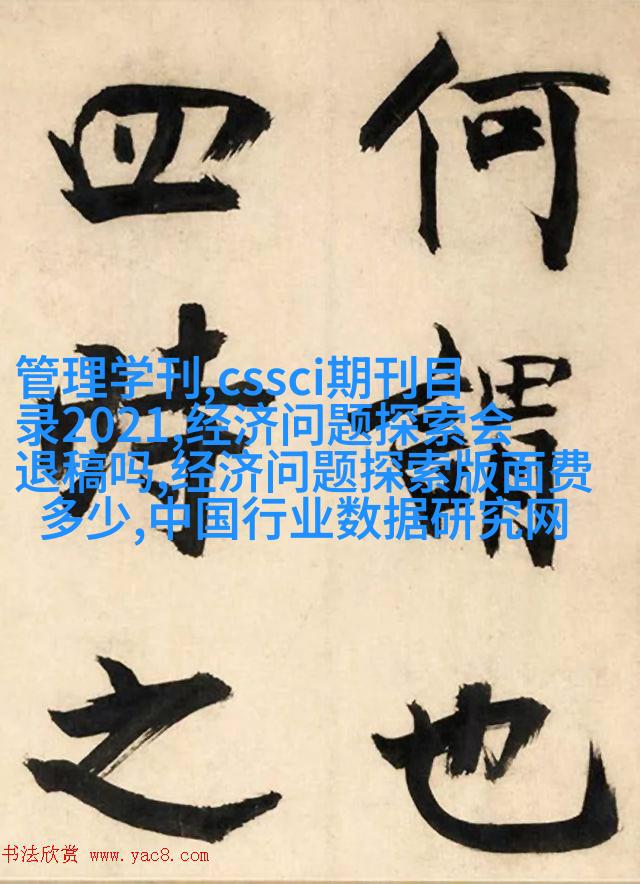 何謂也
四時之
管理学刊,cssci期刊目
录2021,经济问题探索会
退稿吗,经济问题探索版面费
多少,中国行业数据研究网
书法欣赏 www.yac8.com